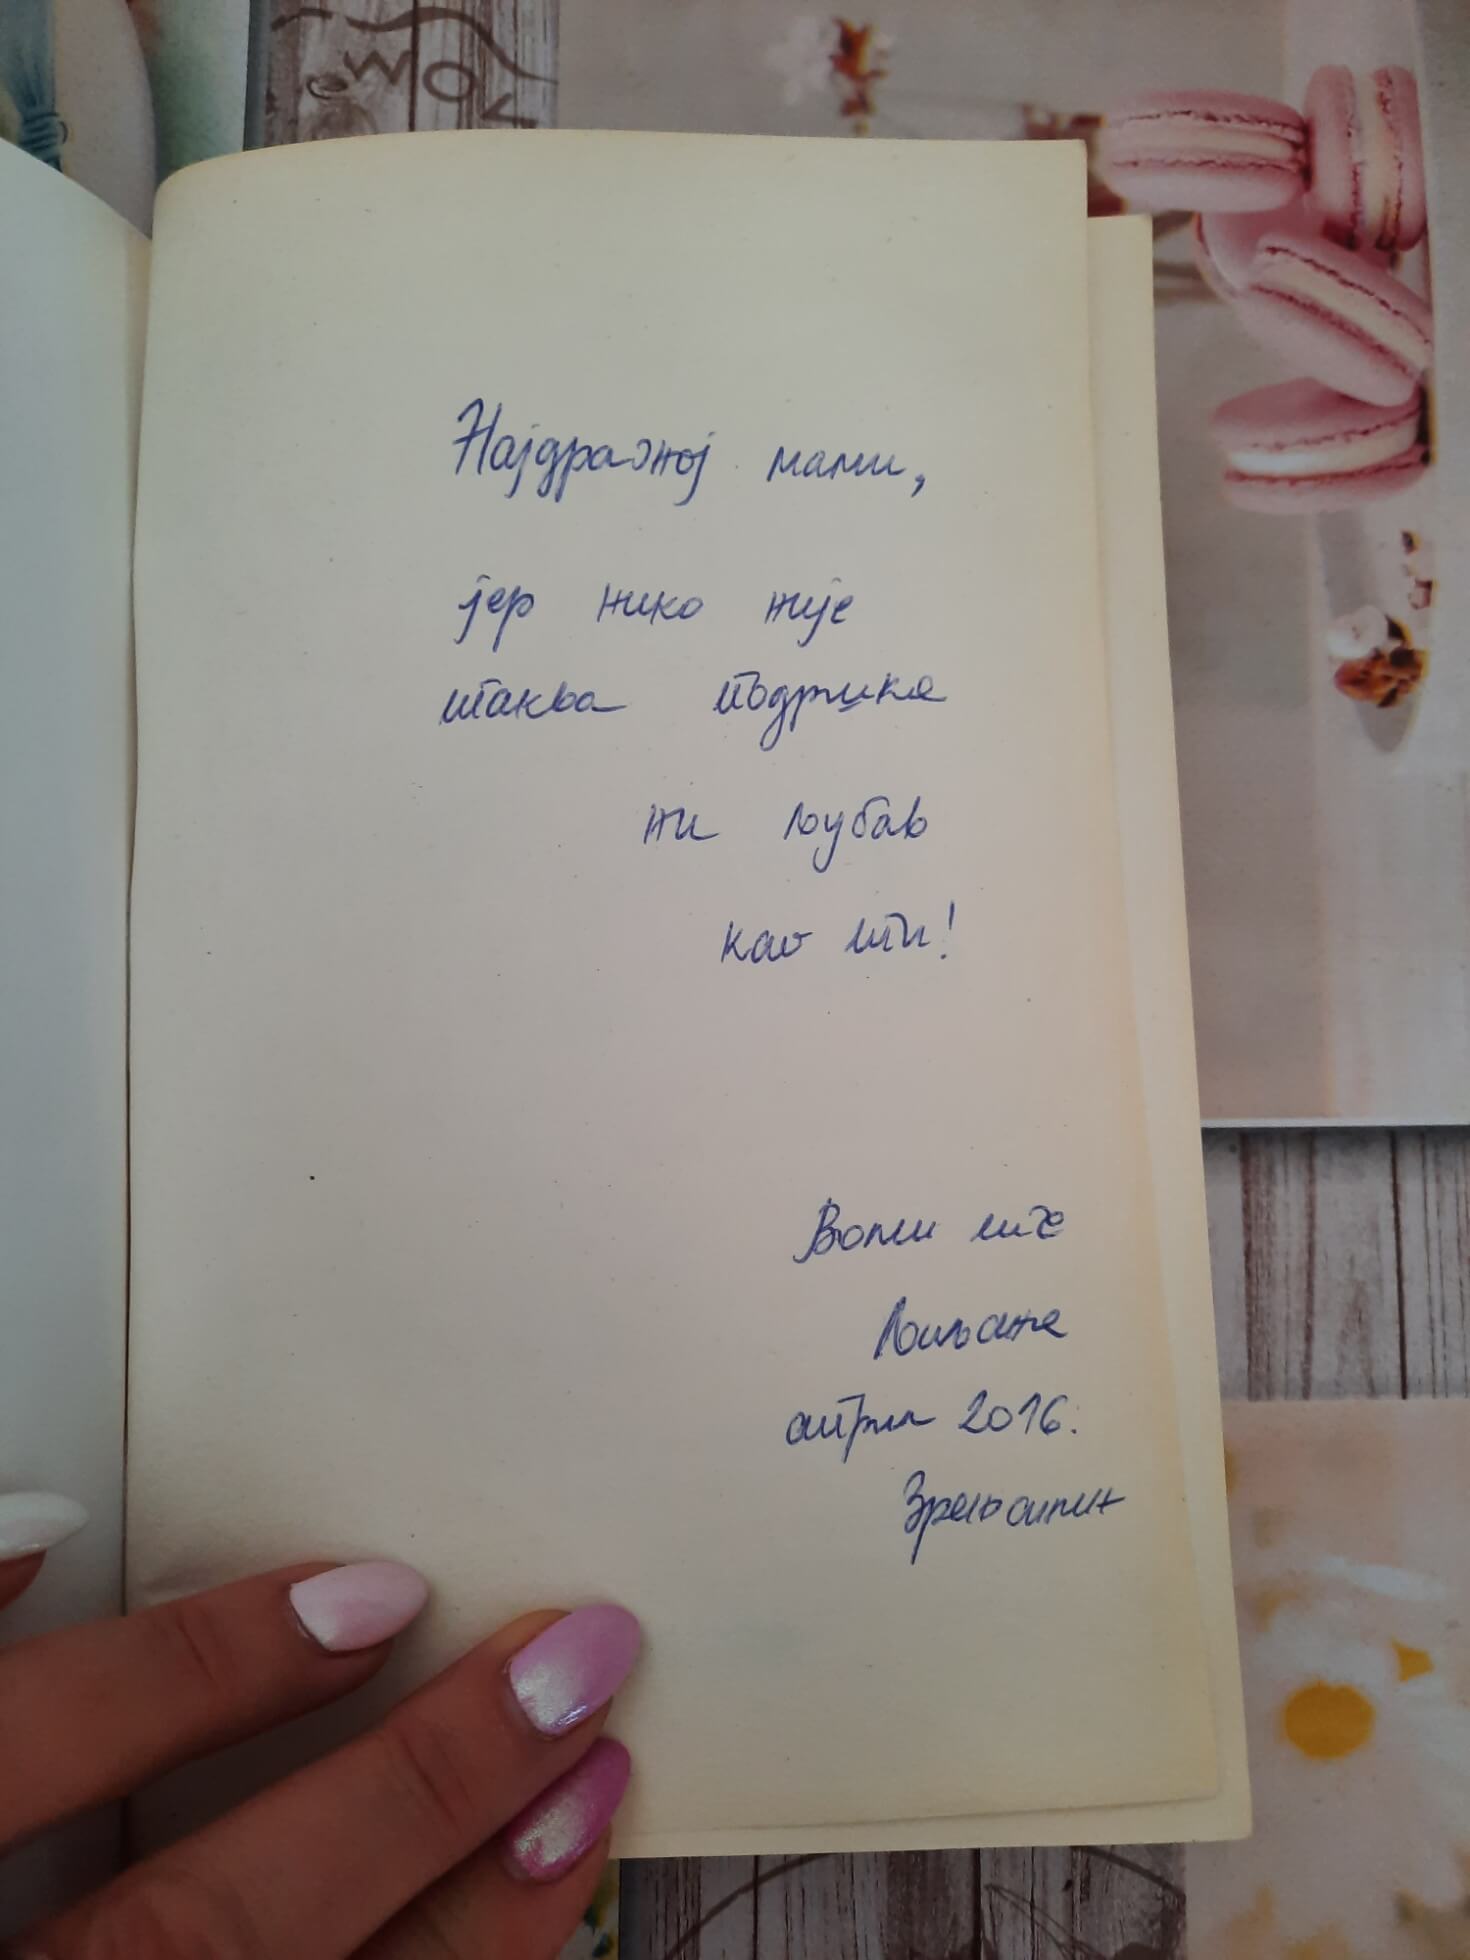 Најдражој мами,
јер нико није
таква подршка
ни љубав
као ти!
Воли те
Љиљана
април 2016.
Зрењанин